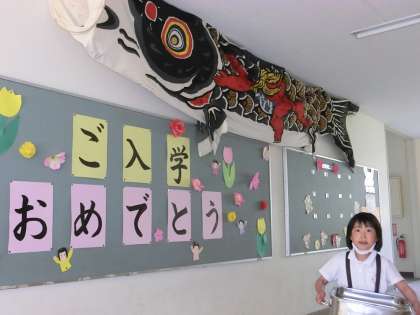 ご入学
おめでとう